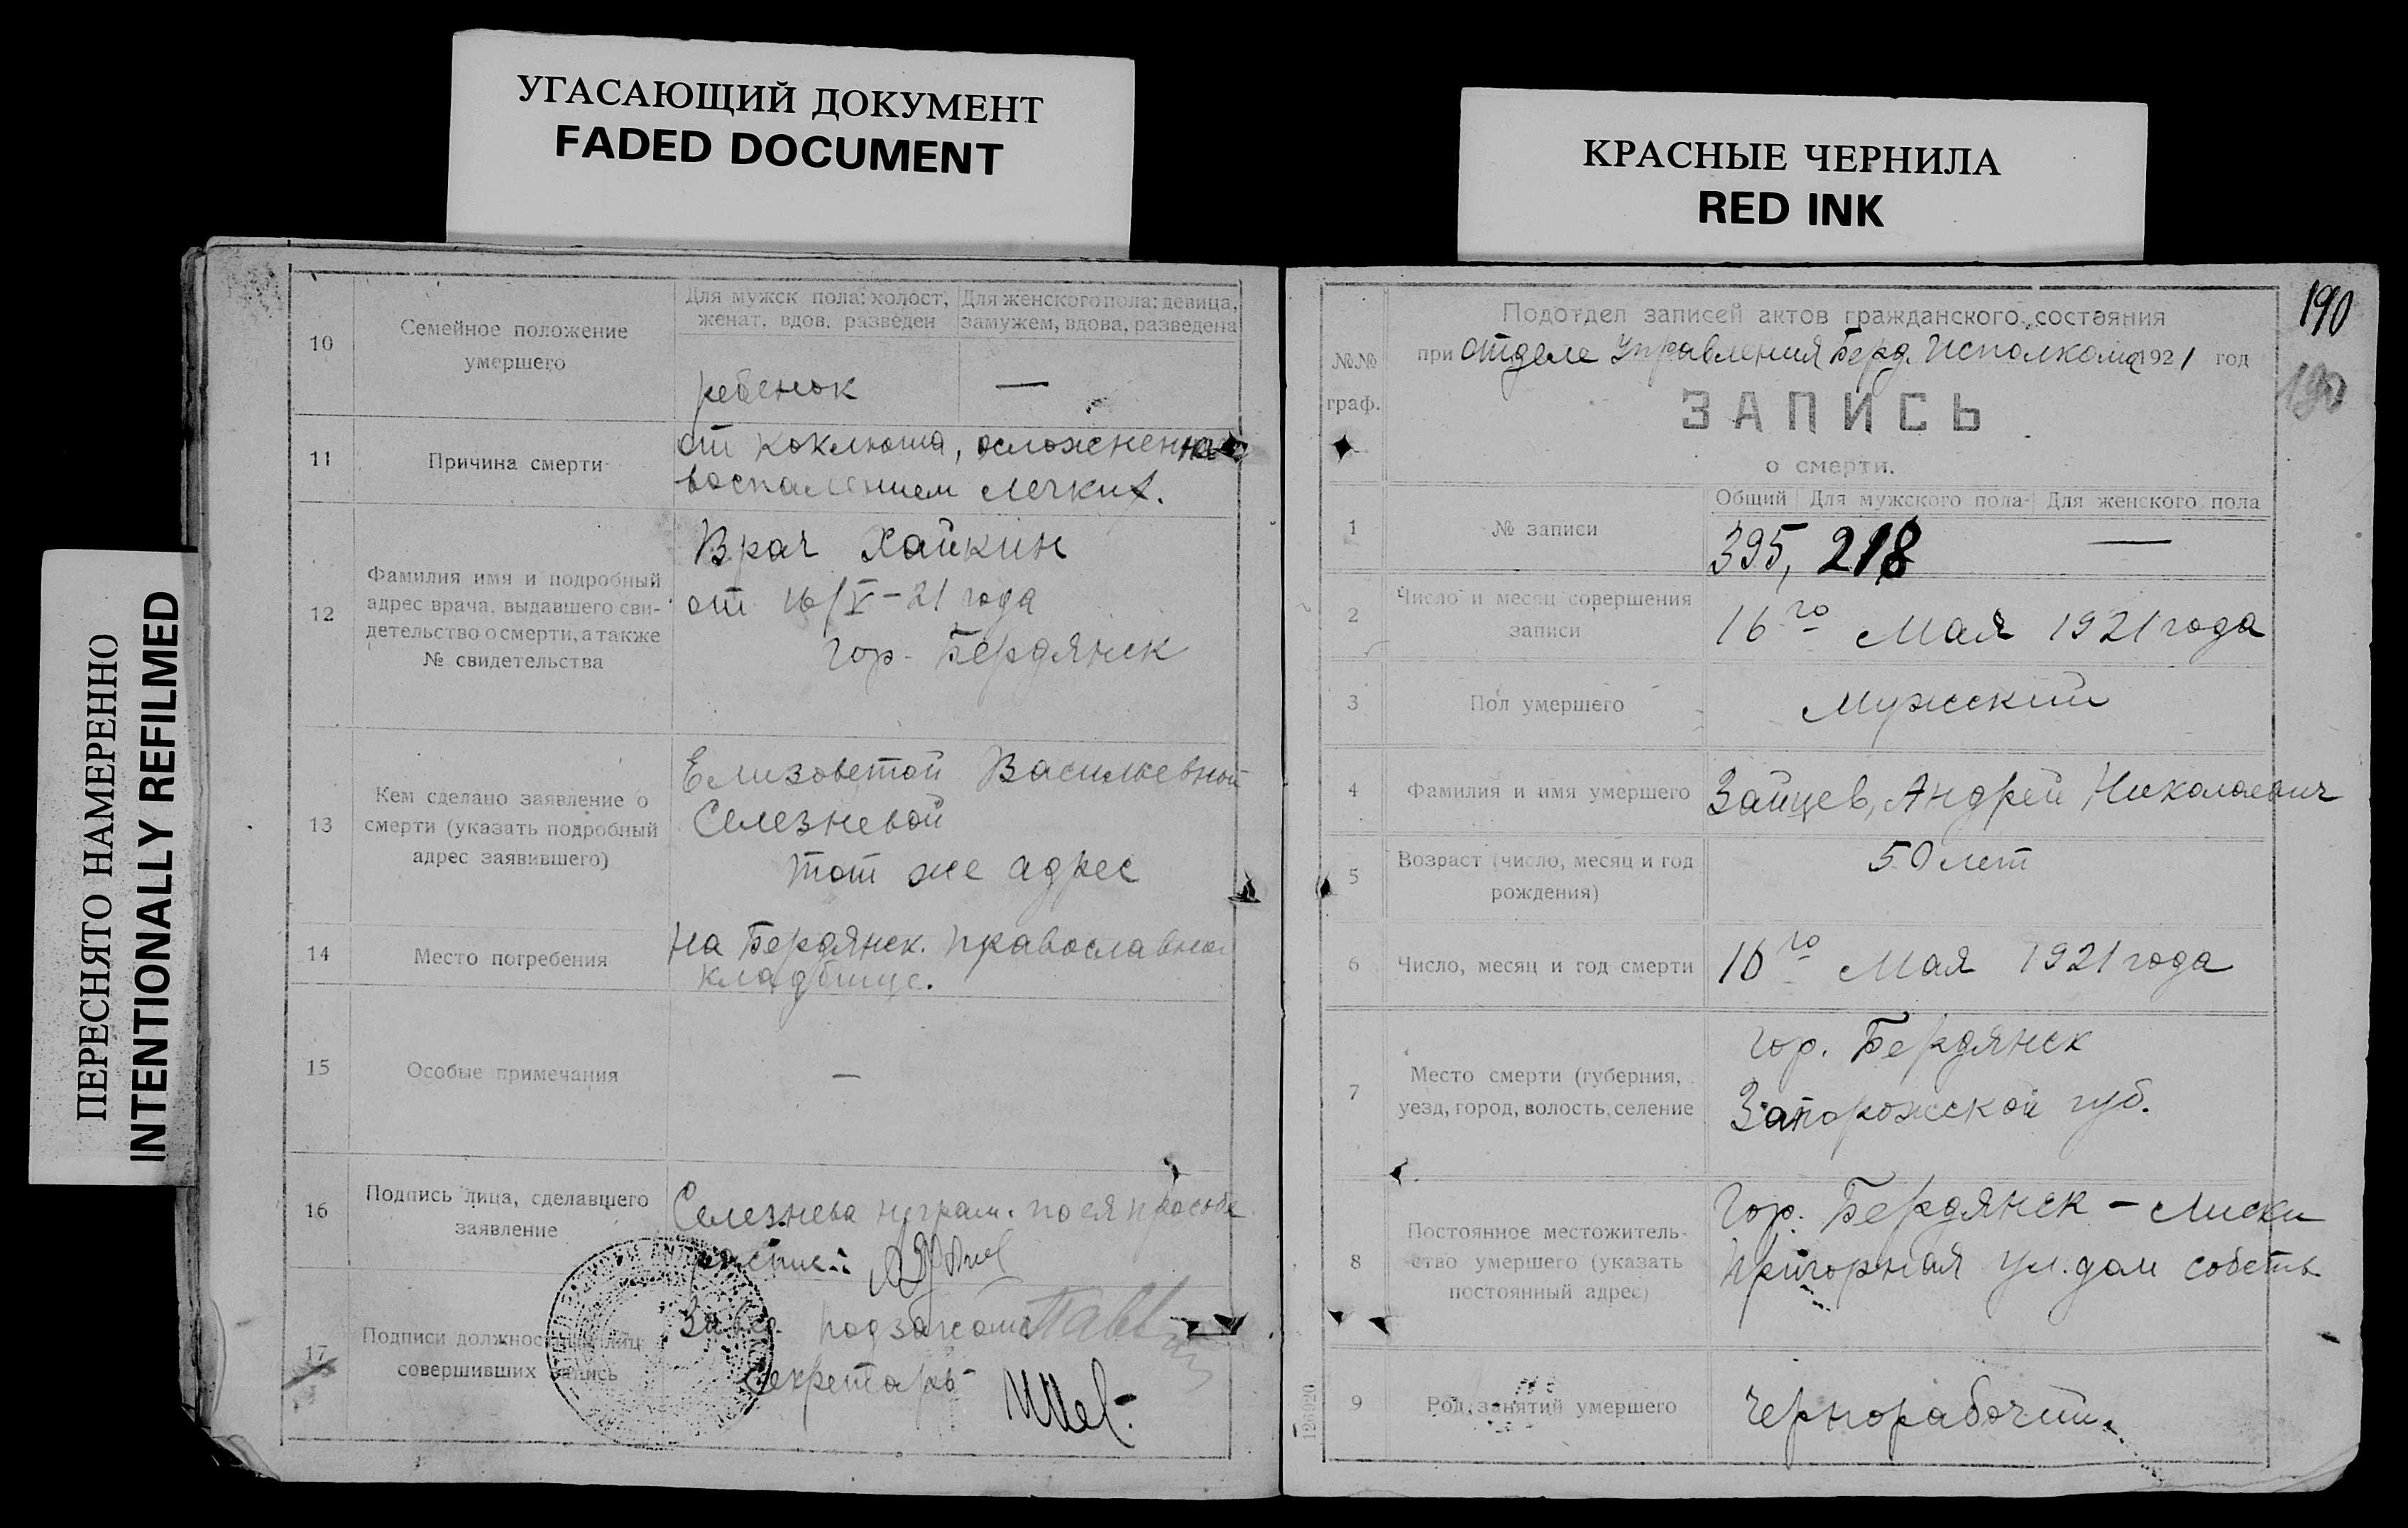 УГАСАЮЩИЙ ДОКУМЕНТ
FADED DOCUMENT
КРАСНЫЕ ЧЕРНИЛА
RED INK
ПЕРЕСНЯТО НАМЕРЕННО
INTENTIONALLY REFILMED
10
Семейное положение
умершего
Для мужск пола: холост,
женат. вдов. разведен
Для женского пола: девица,
замужем, вдова, разведена
ребенок
—
11
Причина смерти
от коклюша, осложненно
воспалением легких.
12
Фамилия имя и подробный
адрес врача, выдавшего сви-
детельство о смерти, а также
№ свидетельства
Врач Хайкин
от 16/V-21 года
гор. Бердянск
13
Кем сделано заявление о
смерти (указать подробный
адрес заявившего)
Елизаветой Васильевной
Селезневой
тот же адрес
14
Место погребения
На Бердянск. православном
кладбище.
15
Особые примечания
—
16
Подпись лица, сделавшего
заявление
Селезнева неграм. по ея просьбе
17
Подписи должностных лиц
совершивших запись
Завед. подзагсом
Секретарь
190
190
№№
граф.
Подотдел записей актов гражданского состояния
при отделе Управления Берд. Исполкома 1921 год
ЗАПИСЬ
о смерти.
1
№ записи
Общий
Для мужского пола
Для женского пола
395, 218 —
2
Число и месяц совершения
записи
16го Мая 1921 года
3
Пол умершего
Мужский
4
Фамилия и имя умершего
Зайцев, Андрей Николаевич
5
Возраст (число, месяц и год
рождения)
50 лет
6
Число, месяц и год смерти
16го Мая 1921 года
7
Место смерти (губерния,
уезд, город, волость, селение
гор. Бердянск
Запорожской губ.
8
Постоянное местожитель-
ство умершего (указать
постоянный адрес)
Гор. Бердянск - Лиски
Пригорная ул. дом собств
9
Род занятий умершего
Чернорабочий.
126020